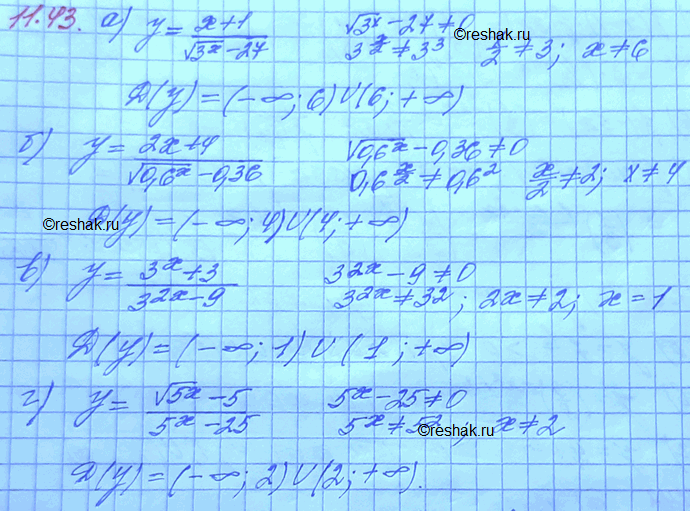 11.43. а) y = (x+1)/(√3ˣ − 27)   √3ˣ − 27 ≠ 0
3^(x/2) ≠ 3³   x/2 ≠ 3; x ≠ 6
©reshak.ru
Д(y) = (−∞; 6) ∪ (6; +∞)
б) y = (2x+4)/(√0,6ˣ − 0,36)   √0,6ˣ − 0,36 ≠ 0
0,6^(x/2) ≠ 0,6²   x/2 ≠ 2; x ≠ 4
©reshak.ru
Д(y) = (−∞; 4) ∪ (4; +∞)
в) y = (3ˣ+3)/(3²ˣ−9)   3²ˣ − 9 ≠ 0
3²ˣ ≠ 3²; 2x ≠ 2; x = 1
Д(y) = (−∞; 1) ∪ (1; +∞)
г) y = (√5ˣ − 5)/(5ˣ − 25)   5ˣ − 25 ≠ 0
5ˣ ≠ 5², x ≠ 2
©reshak.ru
Д(y) = (−∞; 2) ∪ (2; +∞).